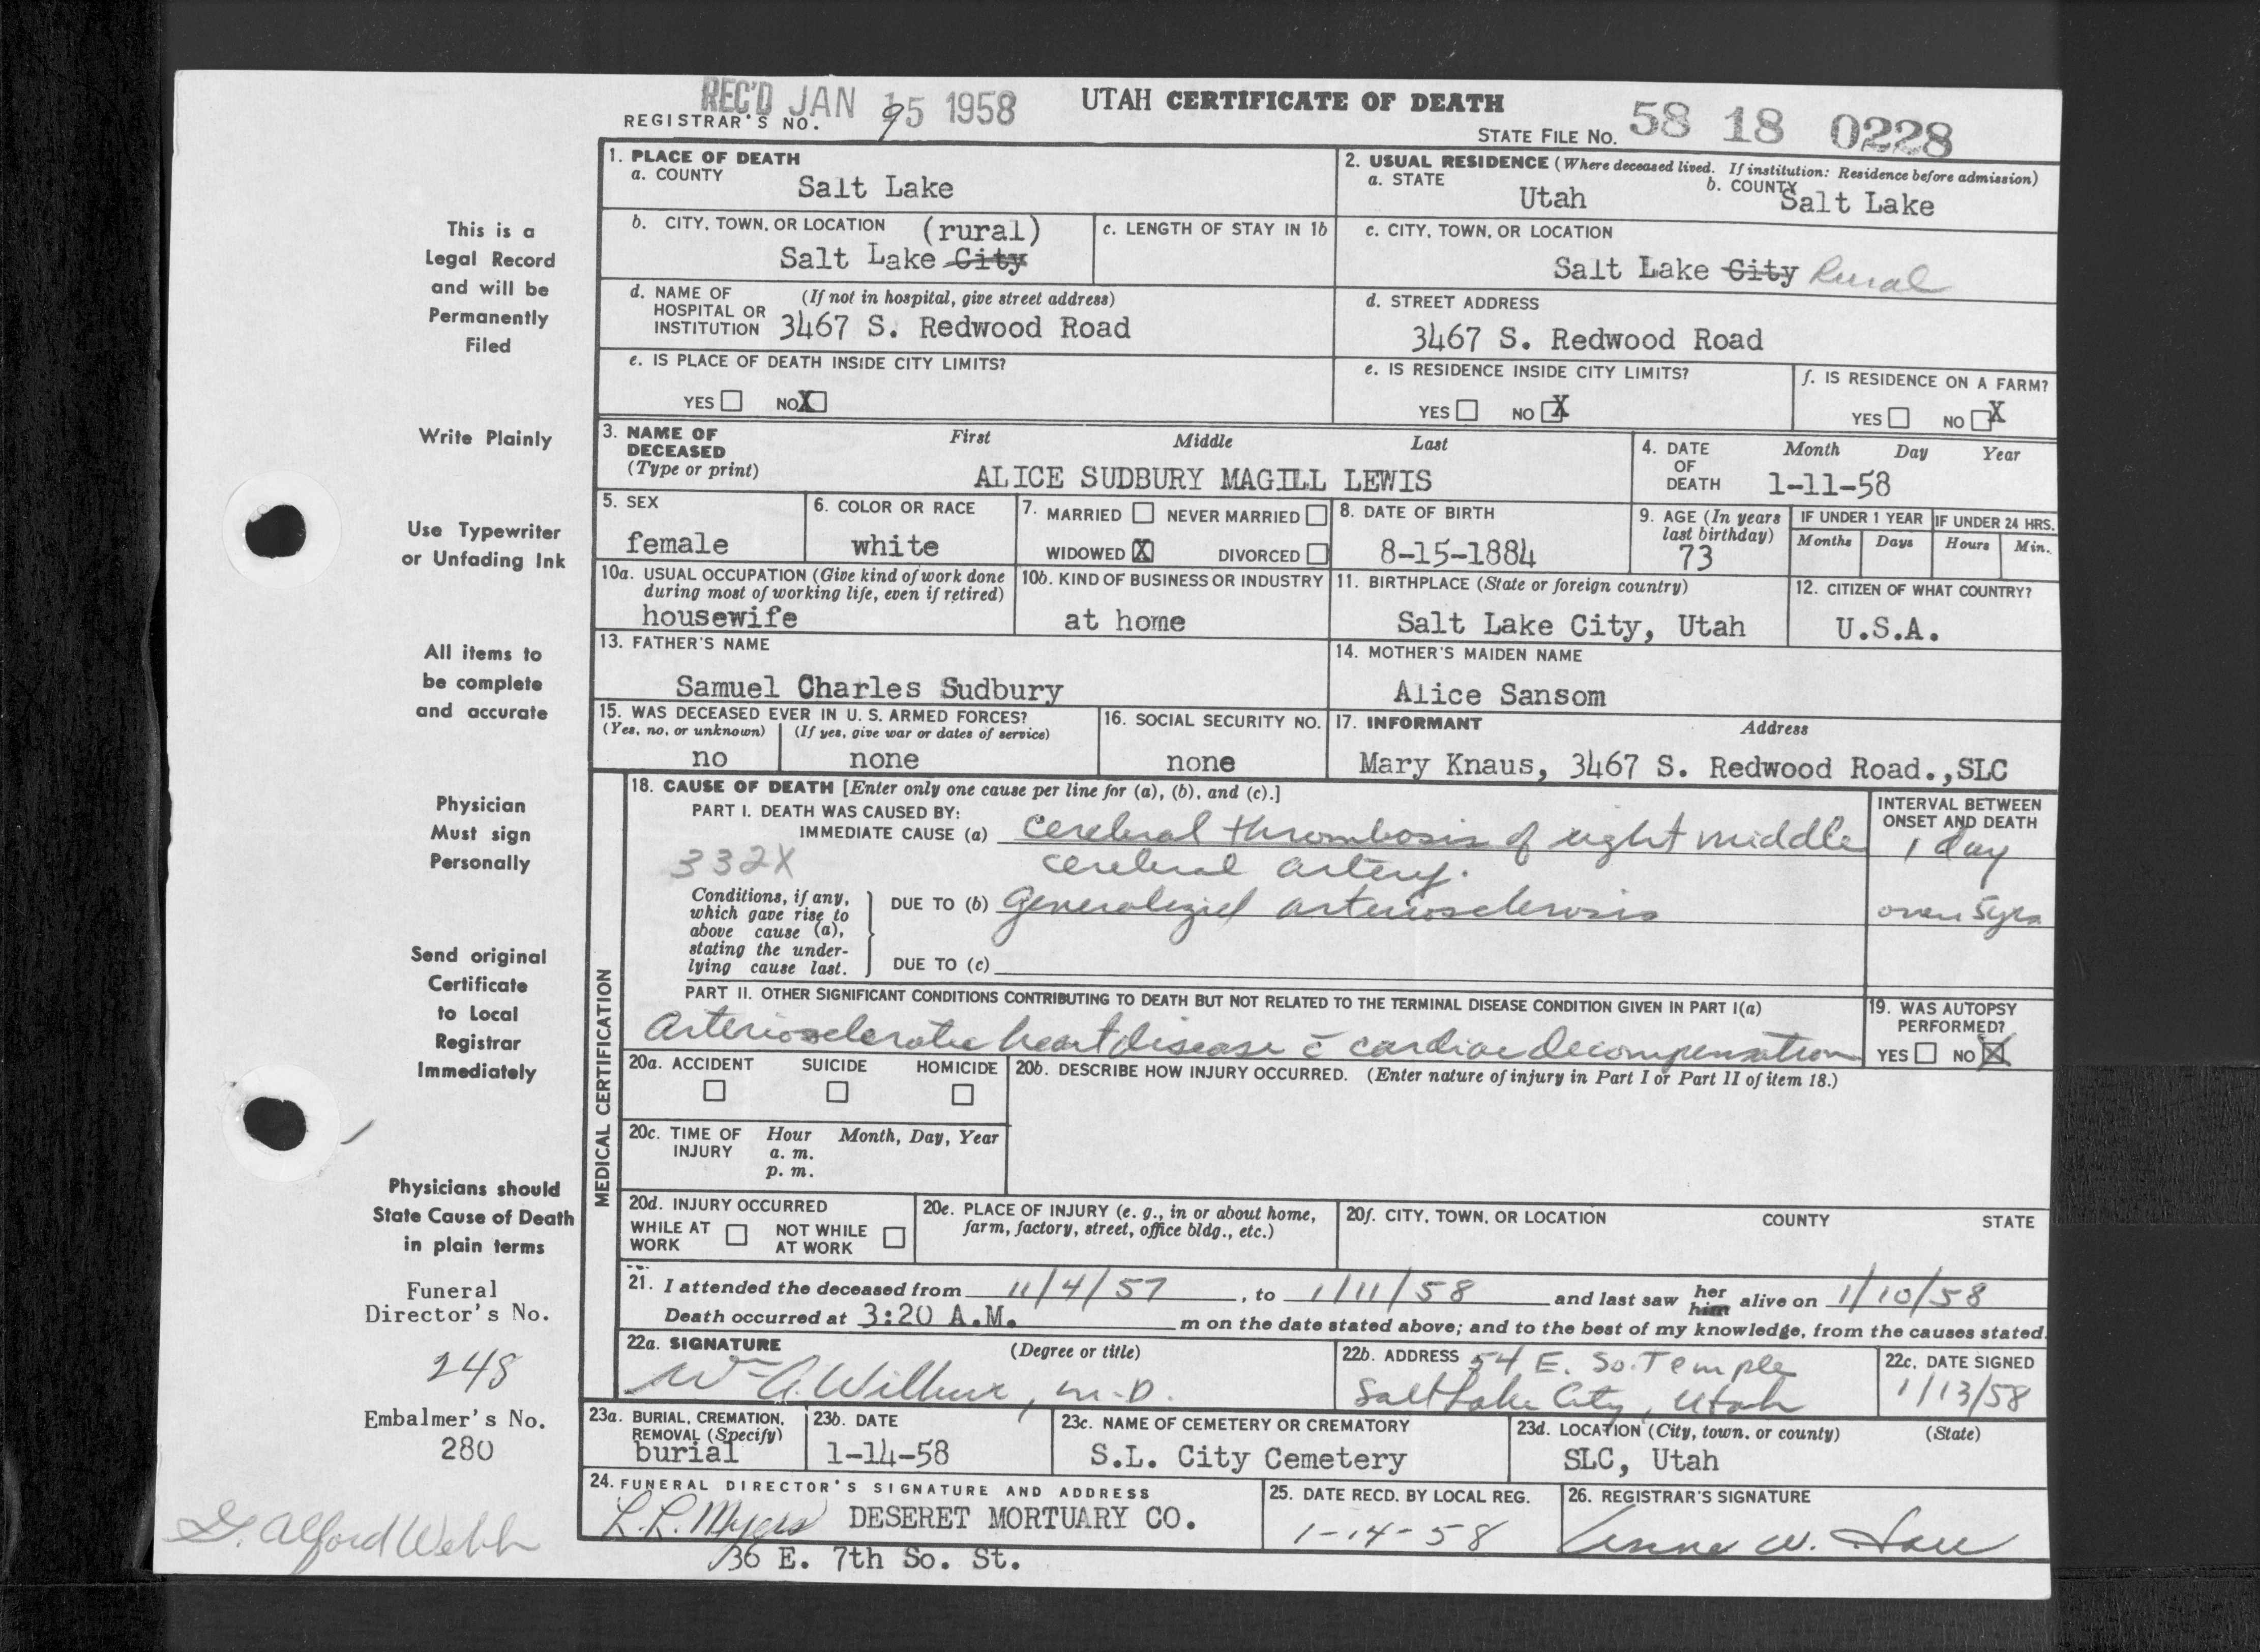 REC'D JAN 15 1958
UTAH CERTIFICATE OF DEATH
REGISTRAR'S NO. 95
STATE FILE No. 58 18 0228
This is a
Legal Record
and will be
Permanently
Filed
Write Plainly
Use Typewriter
or Unfading Ink
All items to
be complete
and accurate
Physician
Must sign
Personally
Send original
Certificate
to Local
Registrar
Immediately
Physicians should
State Cause of Death
in plain terms
Funeral
Director's No.
248
Embalmer's No.
280
G. Alford Webb
1. PLACE OF DEATH
a. COUNTY
Salt Lake
2. USUAL RESIDENCE (Where deceased lived. If institution: Residence before admission)
a. STATE Utah b. COUNTY Salt Lake
b. CITY, TOWN, OR LOCATION (rural)
Salt Lake City
c. LENGTH OF STAY IN 1b
c. CITY, TOWN, OR LOCATION
Salt Lake City Rural
d. NAME OF (If not in hospital, give street address)
HOSPITAL OR
INSTITUTION 3467 S. Redwood Road
d. STREET ADDRESS
3467 S. Redwood Road
e. IS PLACE OF DEATH INSIDE CITY LIMITS?
YES NO X
e. IS RESIDENCE INSIDE CITY LIMITS?
YES NO X
f. IS RESIDENCE ON A FARM?
YES NO X
3. NAME OF First Middle Last
DECEASED
(Type or print) ALICE SUDBURY MAGILL LEWIS
4. DATE Month Day Year
OF
DEATH 1-11-58
5. SEX
female
6. COLOR OR RACE
white
7. MARRIED NEVER MARRIED
WIDOWED X DIVORCED
8. DATE OF BIRTH
8-15-1884
9. AGE (In years
last birthday)
73
IF UNDER 1 YEAR IF UNDER 24 HRS.
Months Days Hours Min.
10a. USUAL OCCUPATION (Give kind of work done
during most of working life, even if retired)
housewife
10b. KIND OF BUSINESS OR INDUSTRY
at home
11. BIRTHPLACE (State or foreign country)
Salt Lake City, Utah
12. CITIZEN OF WHAT COUNTRY?
U.S.A.
13. FATHER'S NAME
Samuel Charles Sudbury
14. MOTHER'S MAIDEN NAME
Alice Sansom
15. WAS DECEASED EVER IN U. S. ARMED FORCES?
(Yes, no, or unknown) (If yes, give war or dates of service)
no none
16. SOCIAL SECURITY NO.
none
17. INFORMANT Address
Mary Knaus, 3467 S. Redwood Road.,SLC
MEDICAL CERTIFICATION
18. CAUSE OF DEATH [Enter only one cause per line for (a), (b), and (c).]
PART I. DEATH WAS CAUSED BY:
IMMEDIATE CAUSE (a) cerebral thrombosis of right middle
332X cerebral artery.
INTERVAL BETWEEN
ONSET AND DEATH
1 day
Conditions, if any,
which gave rise to
above cause (a),
stating the under-
lying cause last.
DUE TO (b) Generalized arteriosclerosis
over 5 yrs
DUE TO (c)
PART II. OTHER SIGNIFICANT CONDITIONS CONTRIBUTING TO DEATH BUT NOT RELATED TO THE TERMINAL DISEASE CONDITION GIVEN IN PART I(a)
Arteriosclerotic heart disease c̄ cardiac decompensation
19. WAS AUTOPSY
PERFORMED?
YES NO X
20a. ACCIDENT SUICIDE HOMICIDE
20b. DESCRIBE HOW INJURY OCCURRED. (Enter nature of injury in Part I or Part II of item 18.)
20c. TIME OF Hour Month, Day, Year
INJURY a. m.
p. m.
20d. INJURY OCCURRED
WHILE AT NOT WHILE
WORK AT WORK
20e. PLACE OF INJURY (e. g., in or about home,
farm, factory, street, office bldg., etc.)
20f. CITY, TOWN, OR LOCATION COUNTY STATE
21. I attended the deceased from 11/4/57, to 1/11/58 and last saw her him alive on 1/10/58
Death occurred at 3:20 A.M. m on the date stated above; and to the best of my knowledge, from the causes stated.
22a. SIGNATURE (Degree or title)
Wm A. Wilbur, M.D.
22b. ADDRESS 54 E. So. Temple
Salt Lake City, Utah
22c. DATE SIGNED
1/13/58
23a. BURIAL, CREMATION,
REMOVAL (Specify)
burial
23b. DATE
1-14-58
23c. NAME OF CEMETERY OR CREMATORY
S.L. City Cemetery
23d. LOCATION (City, town, or county) (State)
SLC, Utah
24. FUNERAL DIRECTOR'S SIGNATURE AND ADDRESS
L.L. Myers DESERET MORTUARY CO.
36 E. 7th So. St.
25. DATE RECD. BY LOCAL REG.
1-14-58
26. REGISTRAR'S SIGNATURE
W.